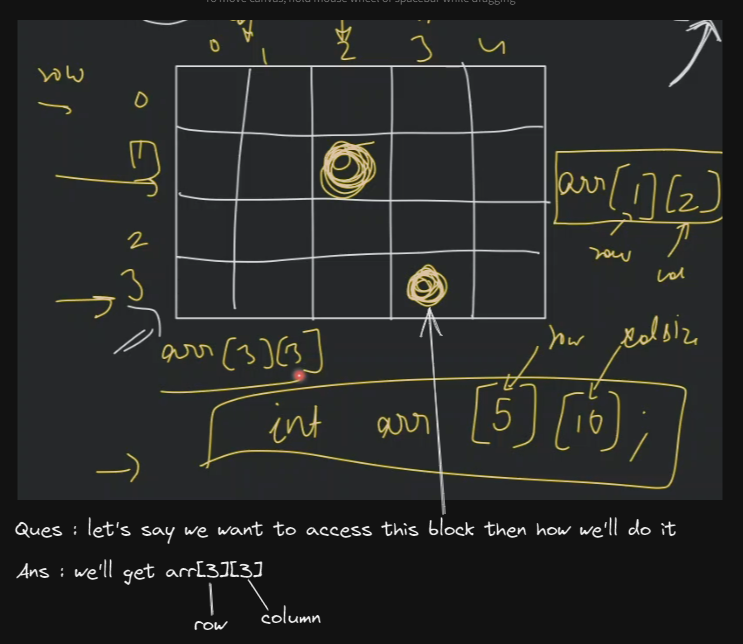 To move canvas, hold mouse wheel or spacebar while dragging
0 1 2 3 4
row
0
1
arr[1][2]
row
col
2
3
arr[3][3]
row colsize
int arr [5][10];
Ques : let's say we want to access this block then how we'll do it
Ans : we'll get arr[3][3]
row column